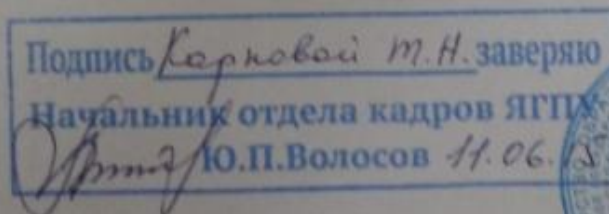 Подпись Карповой Т.Н. заверяю
Начальник отдела кадров ЯГПУ
Ю.П.Волосов 11.06.